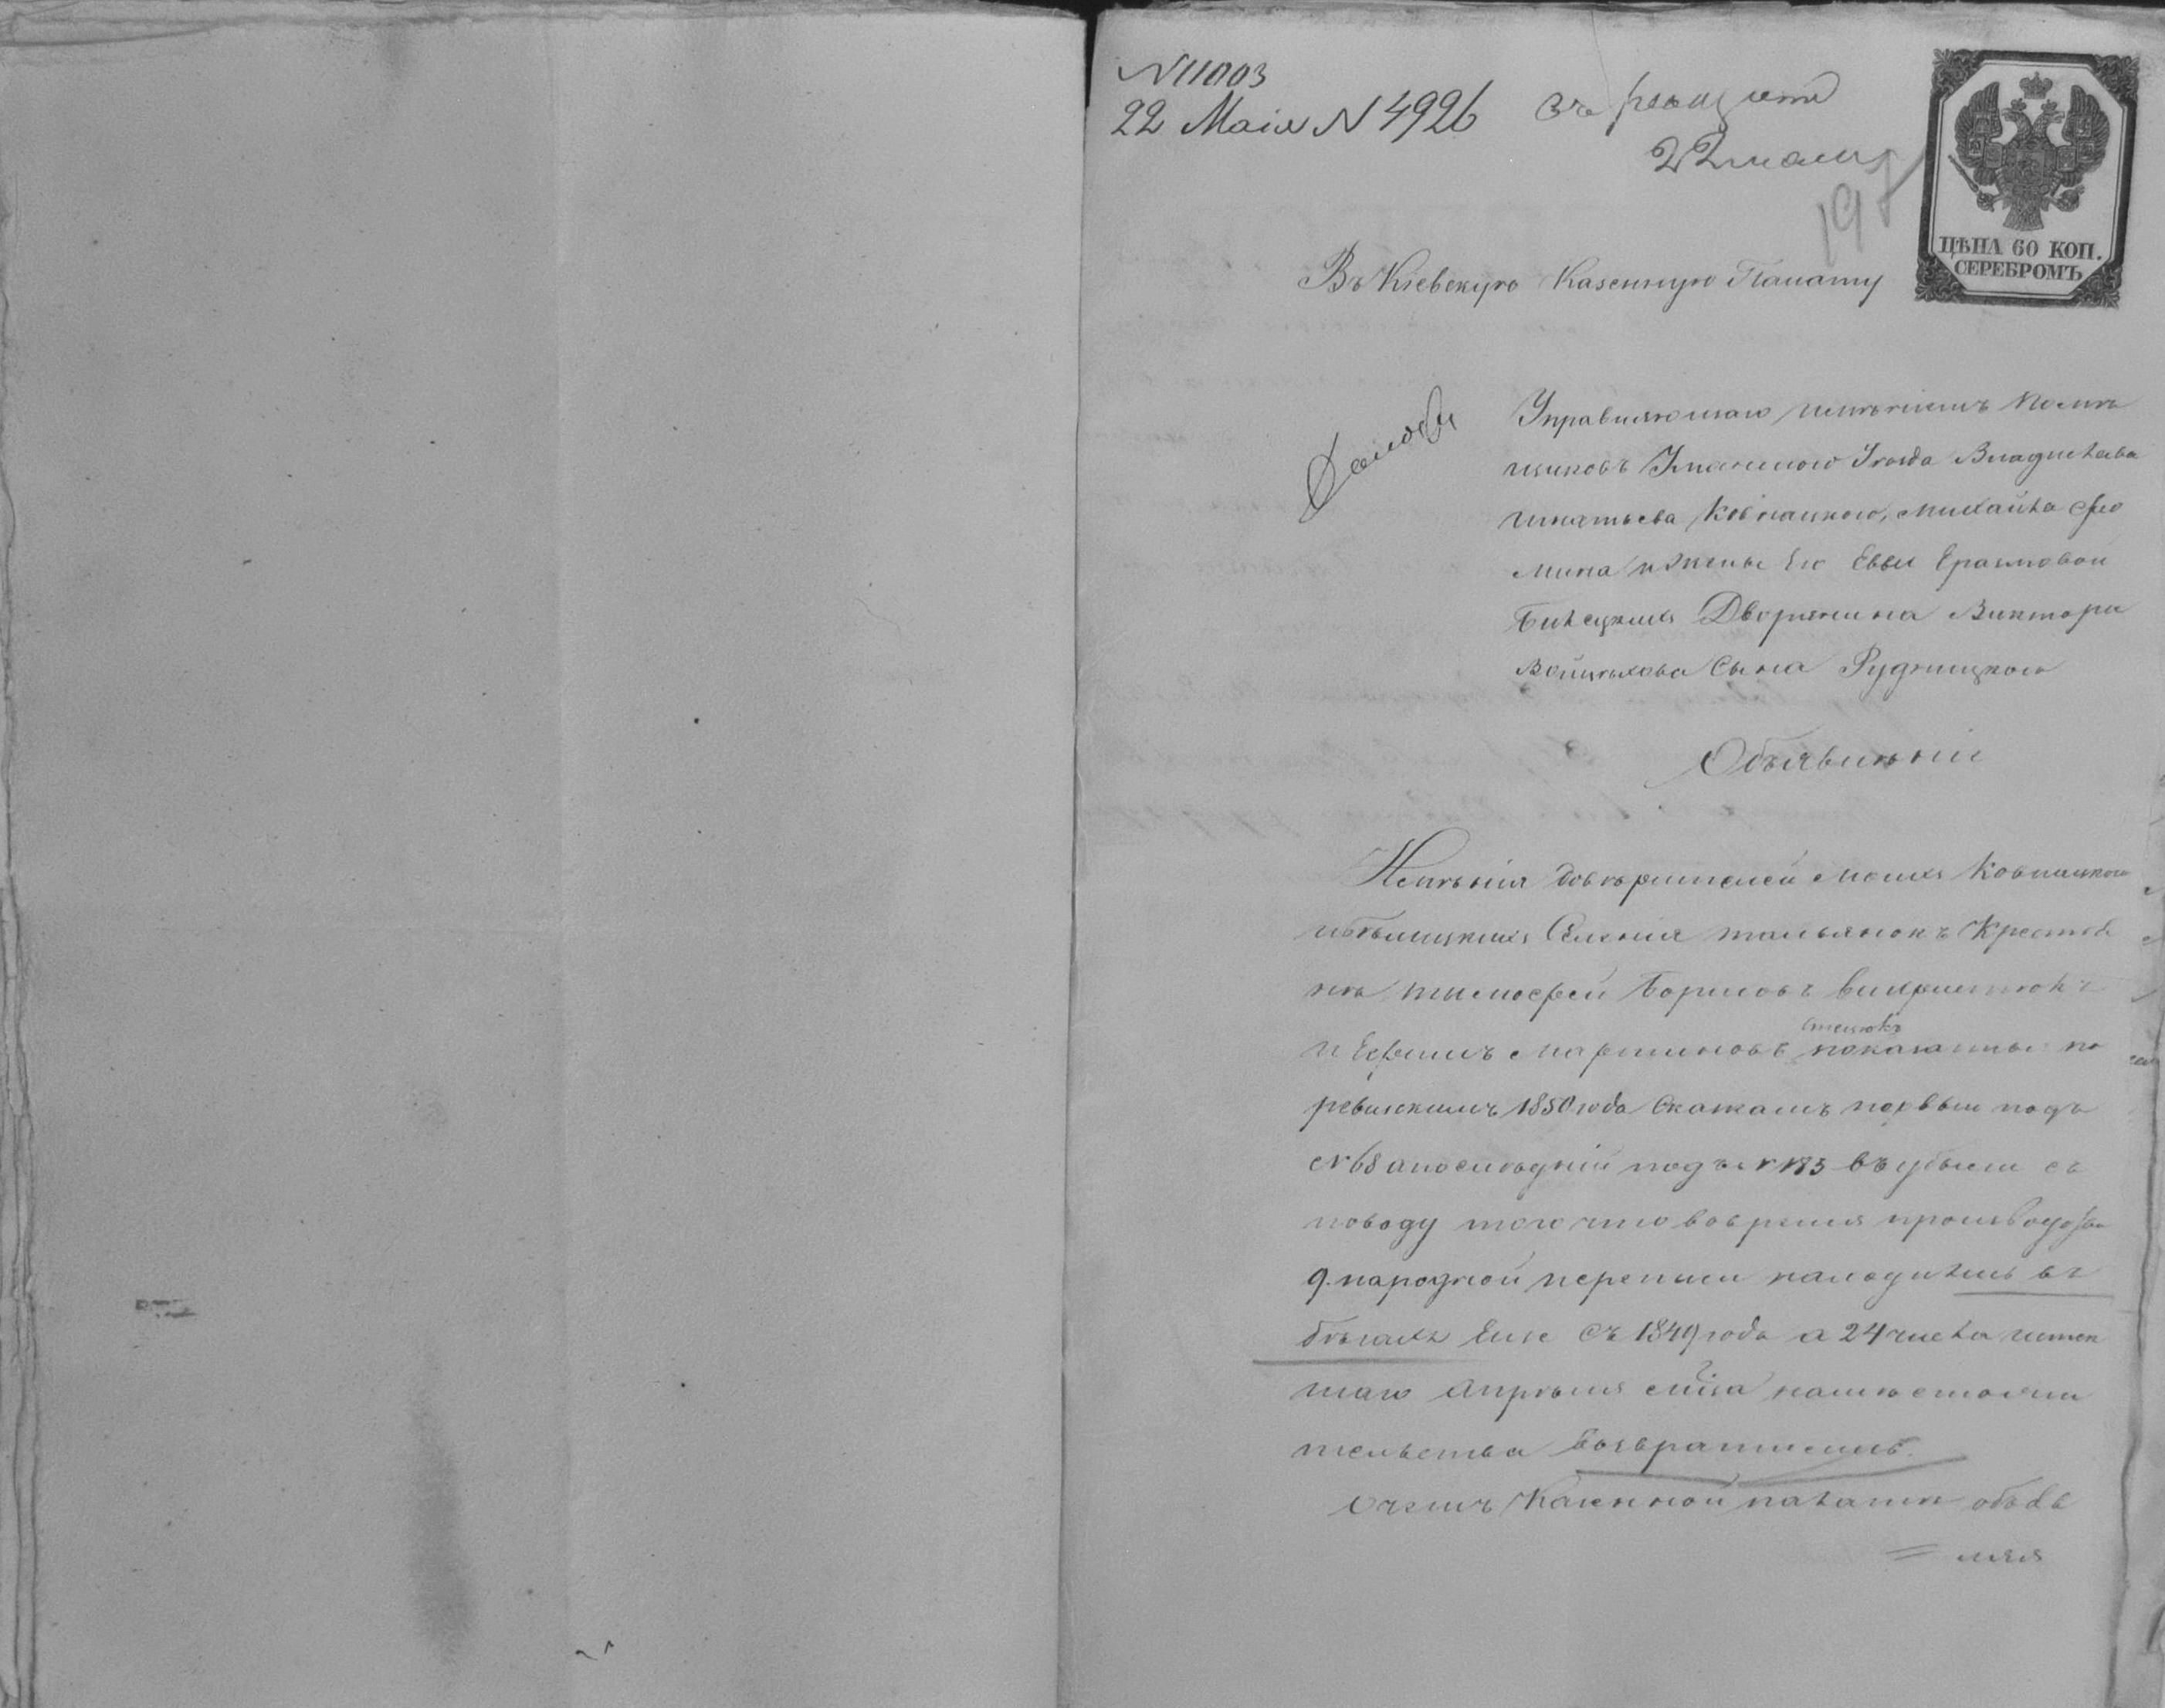 N 11003
22 Маія N 4926
22 мая
197
ЦѢНА 60 КОП.
СЕРЕБРОМЪ.
Въ Кіевскую Казенную Палату
Управляющаго имѣніемъ помѣ
щиковъ Уманского Уѣзда Владислава
Игнатьева Ковнацкого, Михайла Фо
мина и жены Его Еввы Еразмовой
Билецкихъ Дворянина Виктора
Войцѣхова Сына Рудницкого
Объявленіе
Имѣнія довѣрителей моихъ Ковнацкого
Селенія Тальянокъ Крестья
не Тимофей Борисовъ
и Ефимъ Мартиновъ показанные по
ревизскимъ 1850 года Сказкамъ первый подъ
N 68 а послѣдній подъ N 183 въ убыли съ
поводу того что во время производства
9. народной переписи находились въ
бѣгахъ Еще Съ 1849 года а 24 числа истек
шаго Апрѣля мѣсяца
тельства возвратились.
О чемъ Казенной палатѣ объяв
= ляя